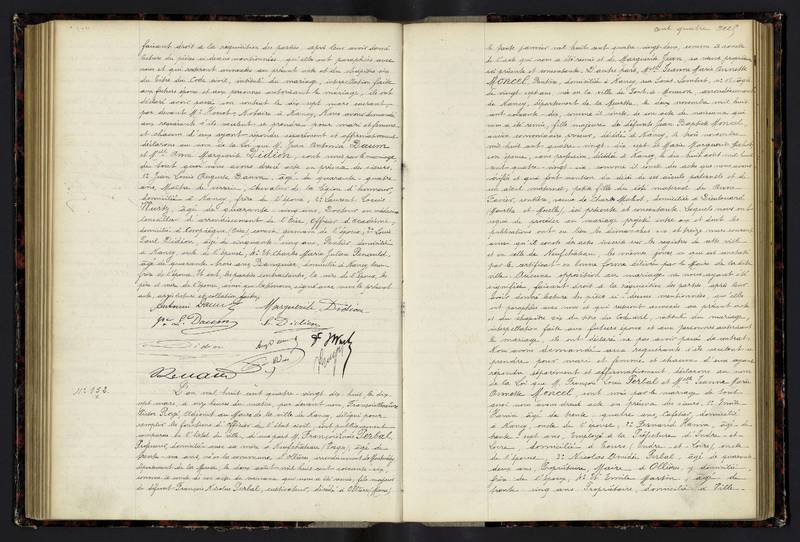 faisant droit à la réquisition des parties, après leur avoir donné
lecture des pièces ci-dessus mentionnées, qu'elles ont paraphées avec
nous et qui resteront annexées au présent acte et du chapitre six
du titre du Code civil, intitulé du mariage, interpellation faite
aux futurs époux et aux personnes autorisant le mariage, ils ont
déclaré avoir passé un contrat le dix sept mars courant
par devant Me notaire à Nancy, Nous avons demandé
aux requérants s'ils veulent se prendre pour mari et femme
et chacun d'eux ayant répondu séparément et affirmativement
déclarons au nom de la loi que M. Jean Antonin Daum
et Mlle Anne Marguerite Didion, sont unis par le mariage
de tout quoi nous avons dressé acte en présence des sieurs,
1º Jean Louis Auguste Daum, âgé de quarante quatre
ans, Maître de verrerie, Chevalier de la Légion d'honneur,
domicilié à Nancy, frère de l'époux, 2º Laurent
Wurtz, âgé de quarante cinq ans, Docteur en médecine
conseiller d'arrondissement de l'Oise, Officier d'académie,
domicilié à Compiègne (Oise) cousin germain de l'époux, 3º Louis
Paul Didion, âgé de cinquante cinq ans, domicilié
à Nancy, oncle de l'épouse, 4º Charles Marie Julien Renauld,
âgé de quarante trois ans, Banquier, domicilié à Nancy, beau
frère de l'épouse. Et ont, les parties contractantes, la mère de l'époux, les
père et mère de l'épouse, ainsi que les témoins, signé avec nous le présent
acte, après lecture et collation faites,
Antonin Daum Marguerite Didion
L. Daum Didion
Didion Daum Wurtz
Renauld
Nº 152
L'an mil huit cent quatre vingt dix huit, le dix
sept mars, à onze heures du matin, par devant nous, François
Victor adjoint au Maire de la ville de Nancy, délégué pour
remplir les fonctions d'Officier de l'état civil, ont publiquement
comparu en l'hôtel de ville, d'une part M. François Louis Perbal,
Professeur, domicilié avec sa mère à Neufchâteau (Vosges), âgé de
trente un ans, né en la commune d'Ollières, arrondissement de Montmédy,
département de la Meuse, le douze août mil huit cent soixante six,
comme il conste de son acte de naissance qui nous a été remis, fils majeur
de défunt François Nicolas Perbal, cultivateur, décédé à Ollières (Meuse),
cent quatre
le trente janvier mil huit cent quatre vingt deux, comme il conste
de l'acte qui nous a été remis et de Marguerite Jean, sa veuve
ici présente et consentante. D'autre part, Mlle Jeanne Marie Annette
Moncel, Rentière, domiciliée à Nancy, rue Saint Lambert, nº 15, âgée
de vingt sept ans, née en la ville de Pont à Mousson, arrondissement
de Nancy, département de la Meurthe, le deux novembre mil huit
cent soixante dix, comme il conste de son acte de naissance qui
nous a été remis, fille majeure de défunts Jean Baptiste Moncel,
ancien commissaire priseur, décédé à Nancy, le trois novembre
mil huit cent quatre vingt six et Marie Marguerite Mahut
son épouse, sans profession, décédée à Nancy, le dix huit août mil huit
cent quatre vingt six, comme il conste des actes que nous avons
vérifiés et qui font mention du décès de ses aïeuls paternels et de
son aïeul maternel; petite fille du côté maternel de Anne
Favier, rentière, veuve de Charles Mahut, domiciliée à Dieulouard
(Meurthe et Moselle), ici présente et consentante. Lesquels nous ont
requis de procéder au mariage projeté entre eux et dont les
publications ont eu lieu les dimanches six et treize mars courant
ainsi qu'il conste des actes inscrits sur les registres de cette ville
et en celle de Neufchâteau, les mêmes jours, ce qui est constaté
par le certificat en bonne forme délivré par le Maire de ladite
ville. Aucune opposition au mariage ne nous ayant été
signifiée, faisant droit à la réquisition des parties, après leur
avoir donné lecture des pièces ci dessus mentionnées, qu'elles
ont paraphées avec nous et qui resteront annexées au présent acte
et du chapitre six du titre du Code civil, intitulé du mariage,
interpellation faite aux futurs époux et aux personnes autorisant
le mariage, ils ont déclaré ne pas avoir passé de contrat.
Nous avons demandé aux requérants s'ils veulent se
prendre pour mari et femme et chacun d'eux ayant
répondu séparément et affirmativement, déclarons au nom
de la loi que M. François Louis Perbal et Mlle Jeanne Marie
Annette Moncel, sont unis par le mariage de tout
quoi nous avons dressé acte en présence des sieurs, 1º
Hanin, âgé de trente quatre ans, Cafetier, domicilié
à Nancy, oncle de l'épouse, 2º Fernand Hanin, âgé de
trente sept ans, Employé à la Préfecture d'Indre et
Loire, domicilié à Tours (Indre et Loire) oncle
de l'épouse, 3º Nicolas Perbal, âgé de quarante
deux ans, Propriétaire, Maire d'Ollières, y domicilié,
frère de l'époux, 4º Emile Martin, âgé de
trente cinq ans, Propriétaire, domicilié à Ville-